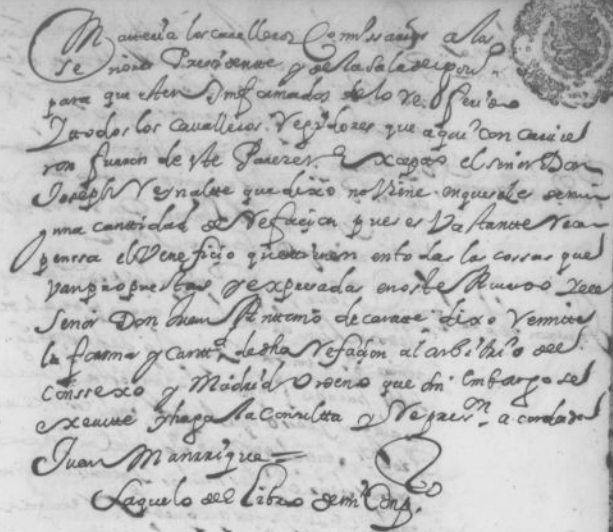 Manera los cavalleros Comissarios a los
señores Presidente y de la sala de gov.no
para que esten Imformados de lo referido
Y todos los cavalleros Regidores que aqui concurrie
ron fueron de este Parezer Excepto el señor Don
Joseph Reynalte que dixo no tiene
una cantidad de Refaçion pues es Vastante Reco
pensa el Veneficio que tienen en todas las cossas que
van propuestas y expresadas en este Acuerdo Y el
señor Don Juan Antonio de carate dixo Remite
la forma y cantt.d de dha Refaçion al arbitrio del
Conssexo y Madrid Ordeno que sin embargo se
execute y haga la Consultta y Represn. acordada
Juan Manrrique =
Saquelo del Libro